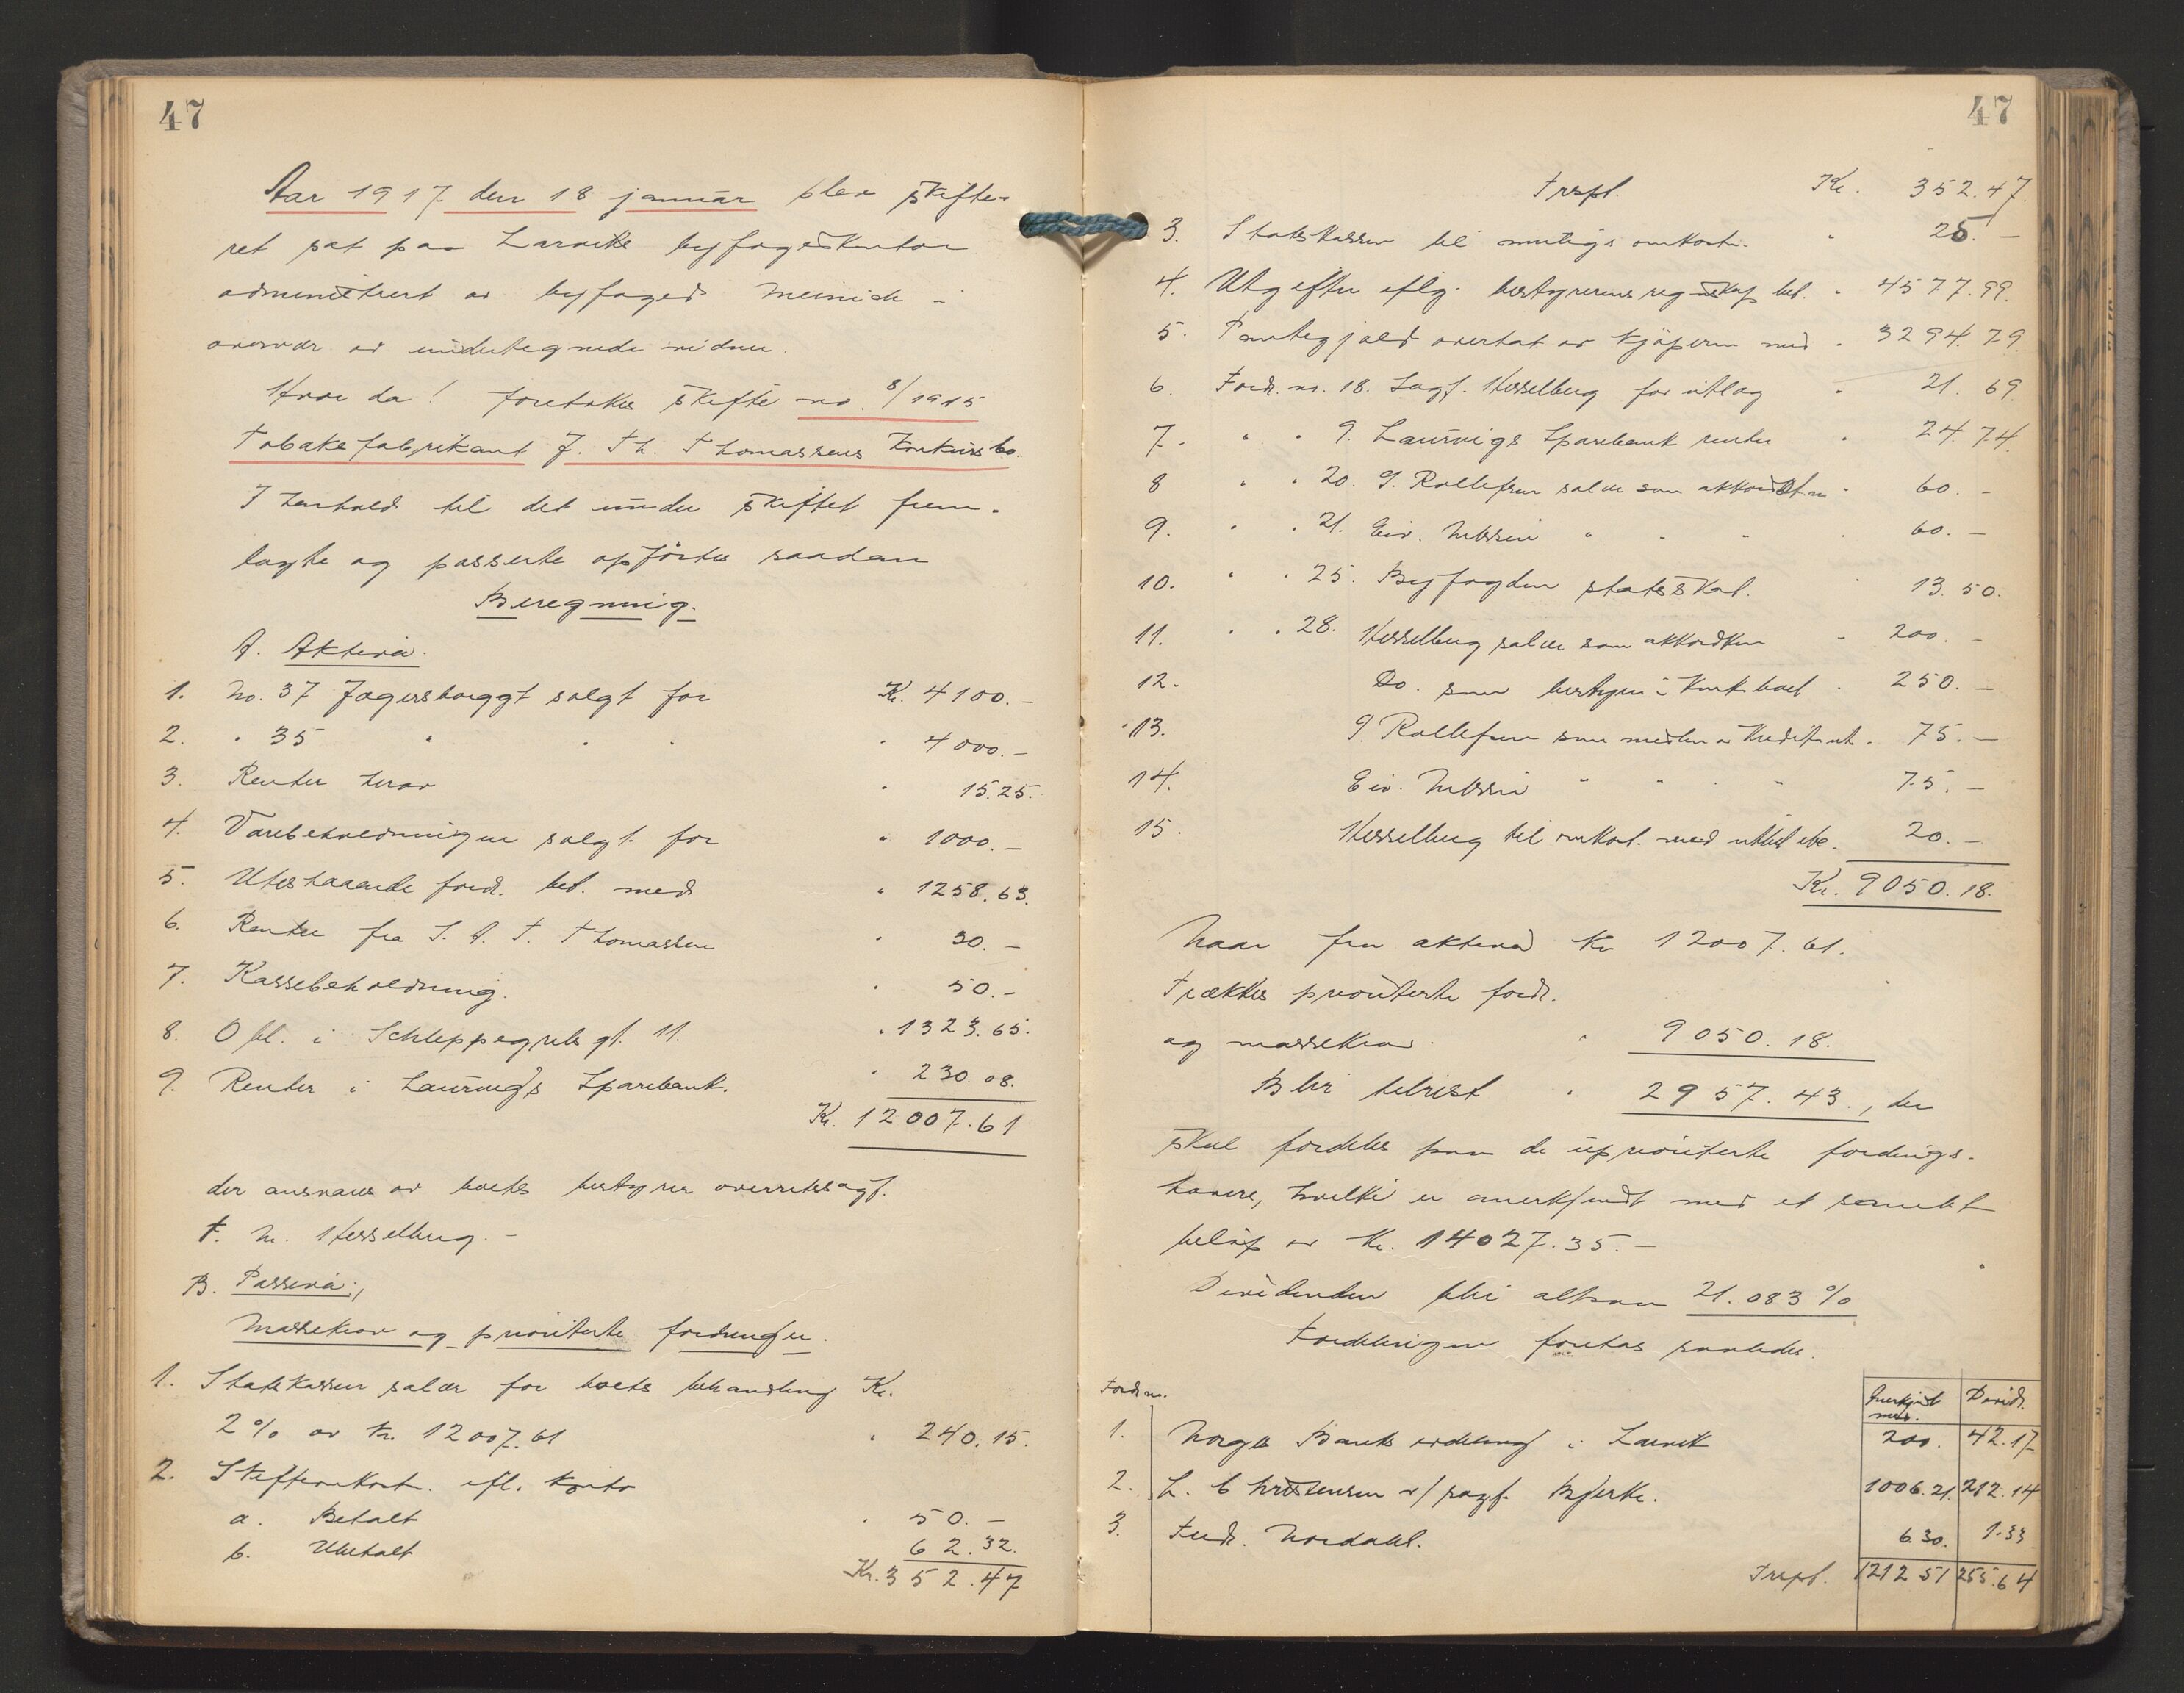 47
Aar 1917 den 18 januar blev skifte-
ret sat paa Larviks byfogedkontor
administrert av byfoged Meinich i
overvær av undertegnede vidner.
Hvor da! foretokes skifte no. 8/1915
Tobaksfabrikant J. Th. Thomassens konkursbo.
I henhold til det under skiftet frem-
lagte og passerte opførtes saadan
Beregning.
A. Aktiva.
1. No. 37 Jegersborggt solgt for Kr. 4100.-
2. " 35 " " " " 4000.-
3. Renter herav " 15.25.
4. Varebeholdningen solgt for " 1000.-
5. Utestaaende fordr. bet. med " 1258.63.
6. Renter fra S. A. T. Thomassen " 30.-
7. Kassebeholdning. " 50.-
8. Obl. i Schleppegrels gt. 11. " 1323.65.
9. Renter i Laurvigs Sparebank. " 230.08.
Kr. 12007.61
der ansvares av boets bestyrer overretssagf.
F. M. Hesselberg.-
B. Passiva:,
Massekrav og prioriterte fordringer.
1. Statskassen salær for boets behandling Kr.
2% av kr. 12007.61 " 240.15.
2. Skifteomkostn. efl. konto
a. Betalt " 50.-
b. Ubetalt 62.32.
Kr. 352.47
47
Trspt. Kr. 352.47.
3. Statskassen til mulige omkostn. " 25.-
4. Utgifter iflg. bestyrerens regnskap bet. " 4577.99.
5. Pantegjæld overtat av kjøperen med " 3294.79.
6. Fordr. nr. 18. Sagf. Hesselberg for utlæg " 21.69.
7. " " 9. Laurvigs Sparebank renter " 24.74.
8 " " 20. G. Rollefsen salær som akkordstm " 60.-
9. " " 21. Eiv. Nilssen " " " 60.-
10. " " 25. Byfogden statsskat. " 13.50.
11. " " 28. Hesselberg salær som akkordstm " 200.-
12. Do. som bestyrer i konkursboet " 250.-
13. G. Rollefsen som medlem av kreditorutv. " 75.-
14. Eiv. Nilssen " " " " 75.-
15. Hesselberg til omkost. med utlod. etc. 20.-
Kr. 9050.18.
Naar fra aktiva kr 12007.61.
trækkes prioriterte fordr.
og massekrav. " 9050.18.
Blir tilrest " 2957.43., der
skal fordeles paa de uprioriterte fordrings-
havere, hvilke er anerkjendt med et samlet
beløp av kr. 14027.35.-
Dividenden blir altsaa 21.083 %
Fordelingen foretas saaledes.
Fordr no. Anerkjendt med. Divid.
1. Norges Banks avdeling i Larvik 200. 42.17
2. L. Christensen v/ sagf. Bjerke. 1006.21. 212.14
3. Fredr. Nordahl. 6.30. 1.33
Trspt. 1212 51 255.64